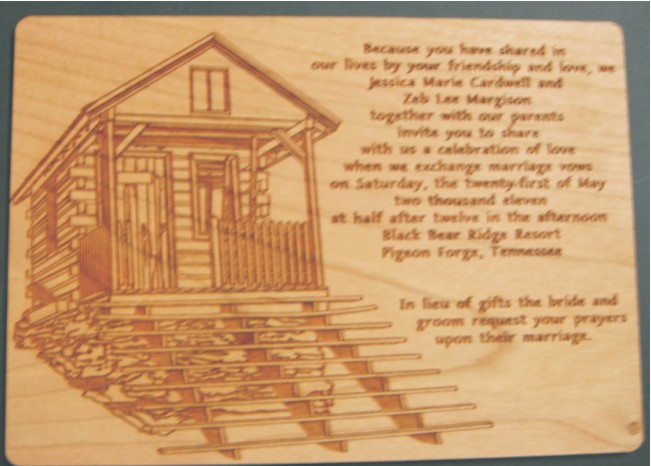 Because you have shared in
our lives by your friendship and love, we
Jessica Marie Cardwell and
Zeb Lee Margison
together with our parents
invite you to share
with us a celebration of love
when we exchange marriage vows
on Saturday, the twenty-first of May
two thousand eleven
at half after twelve in the afternoon
Black Bear Ridge Resort
Pigeon Forge, Tennessee
In lieu of gifts the bride and
groom request your prayers
upon their marriage.